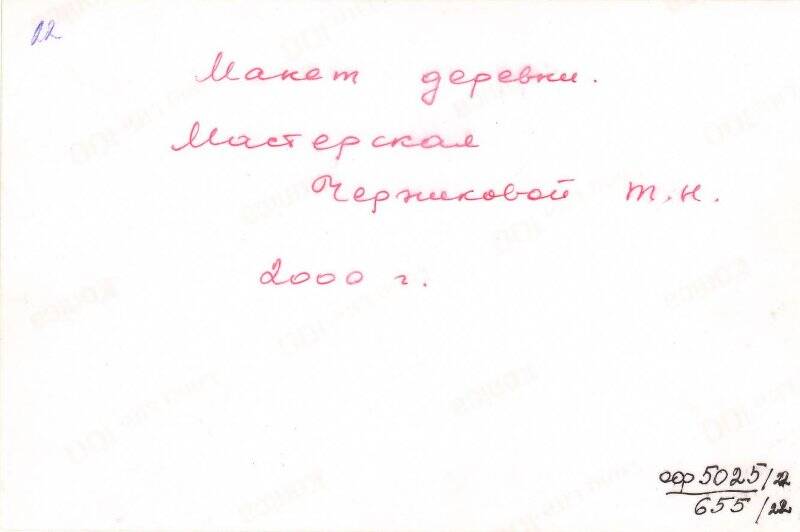 22
Макет деревни.
Мастерская
Черниковой Т.Н.
2000 г.
оф 5025/22
655/22